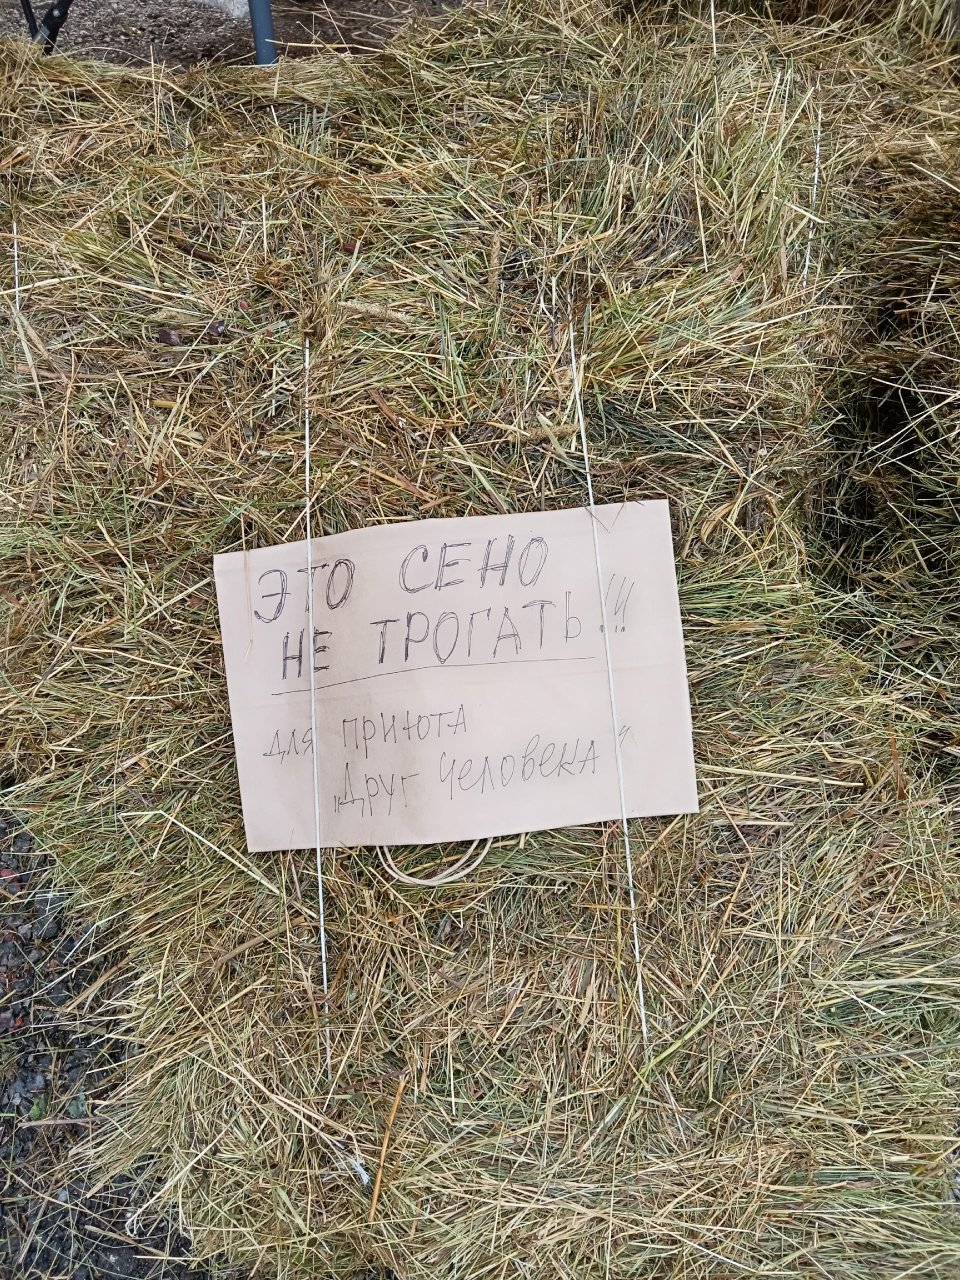 ЭТО СЕНО
НЕ ТРОГАТЬ!!!
для приюта
„Друг Человека"